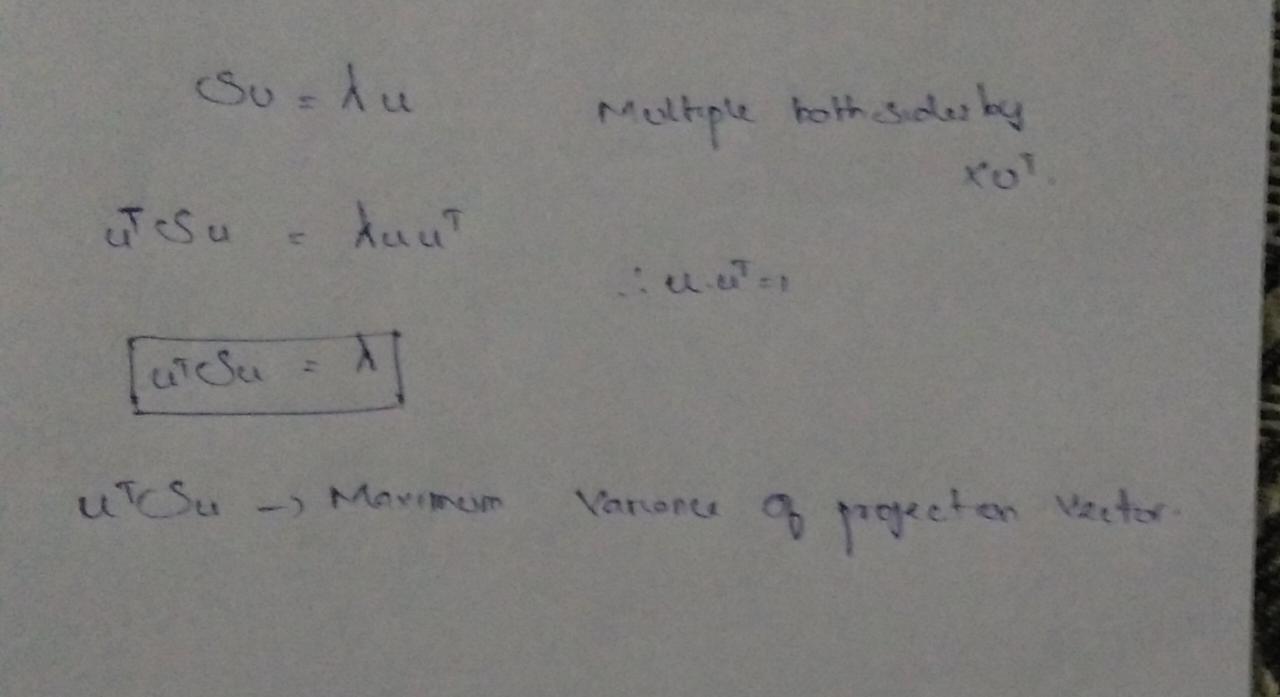 Su = λu Multiple both sides by
×uᵀ.
uᵀSu = λuuᵀ
∴ u.uᵀ=1
uᵀSu = λ
uᵀSu → Maximum Variance of projection vector.